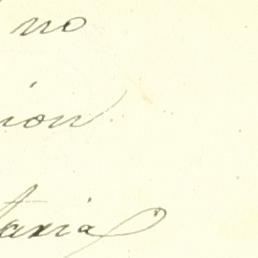 no
ion
taria